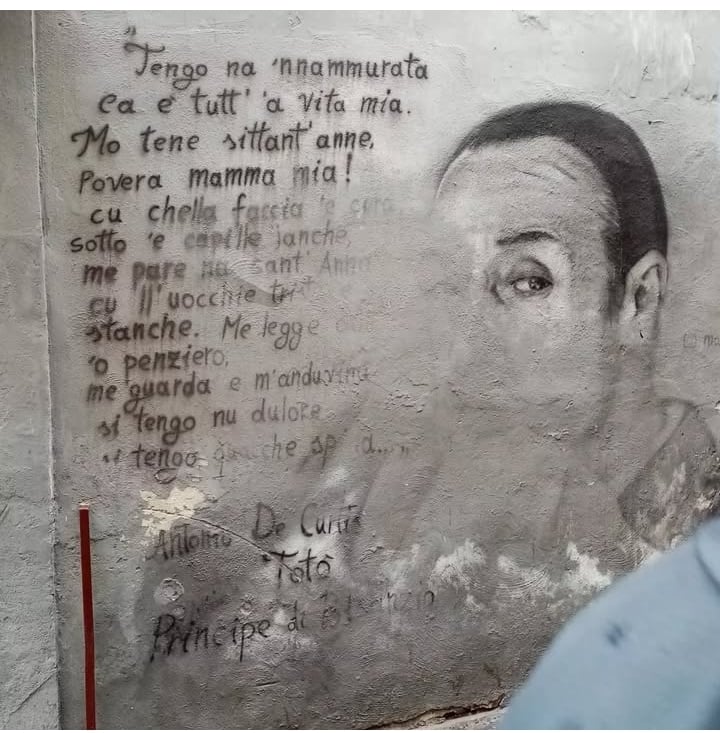 "Tengo na 'nnammurata
ca e' tutt' 'a vita mia.
Mo tene sittant'anne,
Povera mamma mia!
cu chella faccia 'e cera
sotto 'e capille janche,
me pare na sant' Anna
cu ll'uocchie
stanche. Me legge
'o penziero,
me guarda e m'anduvina
si tengo nu dulore
si tengo quacche
Antonio De Curtis
"Totò
Principe di Bisanzio